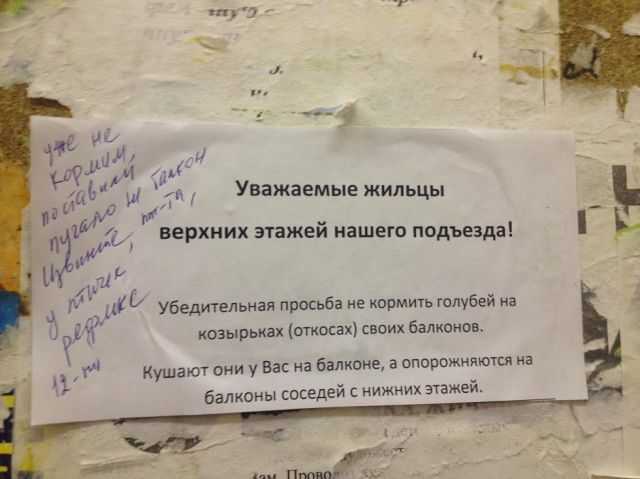 Уважаемые жильцы
верхних этажей нашего подъезда!
Убедительная просьба не кормить голубей на
козырьках (откосах) своих балконов.
Кушают они у Вас на балконе, а опорожняются на
балконы соседей с нижних этажей.
уже не
кормим
поставили
пугало на балкон
Извините, пж-та,
у птичек
рефлекс